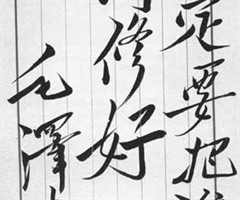 定要把
修好
毛泽